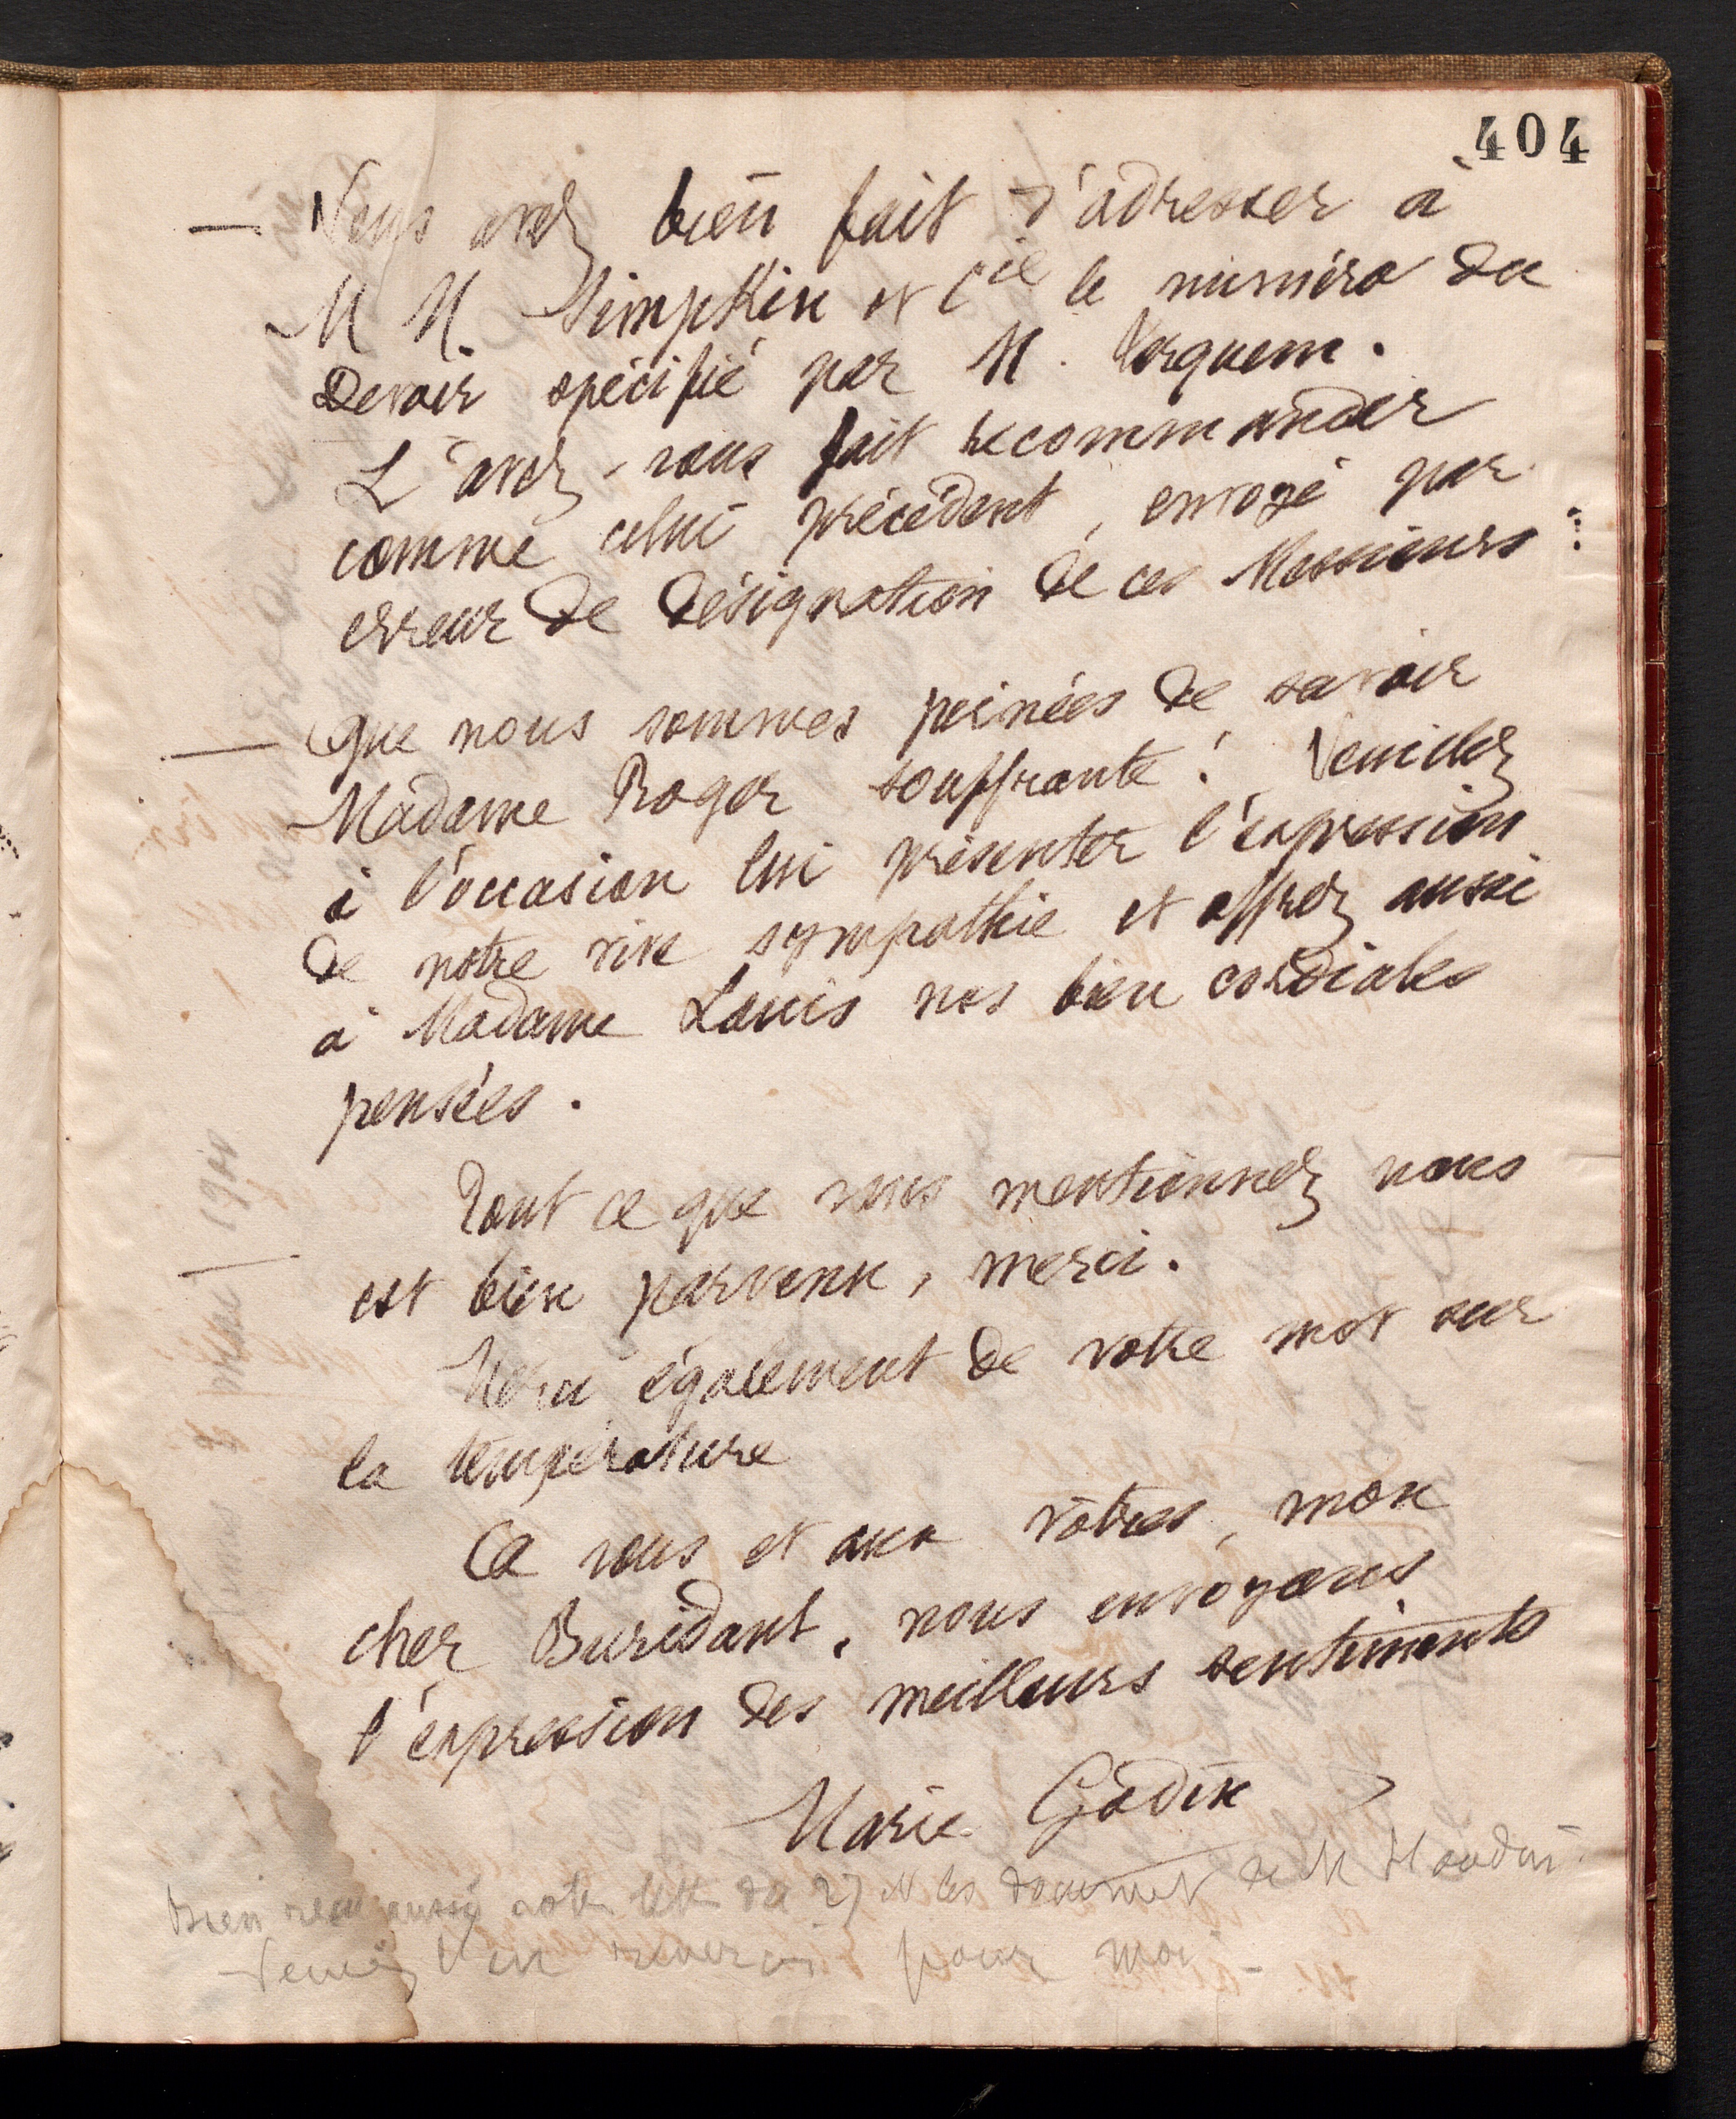 404
— Vous avez bien fait d'adresser à
M M. Simpkin et Cie le numéro du
Devoir spécifié par M. Vorquem.
L'avez-vous fait recommander
comme celui précédent, envoyé par
erreur de désignation de ces Messieurs ?
— Que nous sommes peinées de savoir
Madame Roger souffrante ! Veuillez
à l'occasion lui présenter l'expression
de notre vive sympathie et offrez aussi
à Madame Louis nos bien cordiales
pensées.
Tout ce que vous mentionnez nous
— est bien parvenu, merci.
Merci également de votre mot sur
la température
A vous et aux vôtres, mon
cher Buridant, nous envoyons
l'expression des meilleurs sentiments
Marie Godin
Bien reçu aussi votre lettre du 27 et les document de M Houdin.
Veuillez l'en remercier pour moi -